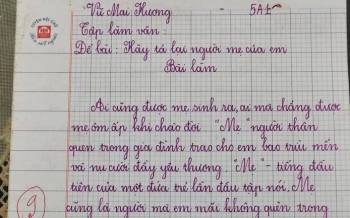 Vũ Mai Hương - 5A1
Tập làm văn:
Đề bài: Hãy tả lại người mẹ của em
Bài làm
Ai cũng được mẹ sinh ra, ai mà chẳng được
mẹ ôm ấp khi chào đời. "Mẹ" người thân
quen trong gia đình trao cho em bao trìu mến
và nụ cười đầy yêu thương. "Mẹ" - tiếng đầu
tiên của một đứa trẻ lần đầu tập nói. Mẹ
9 cũng là người mà em mãi không quên trong